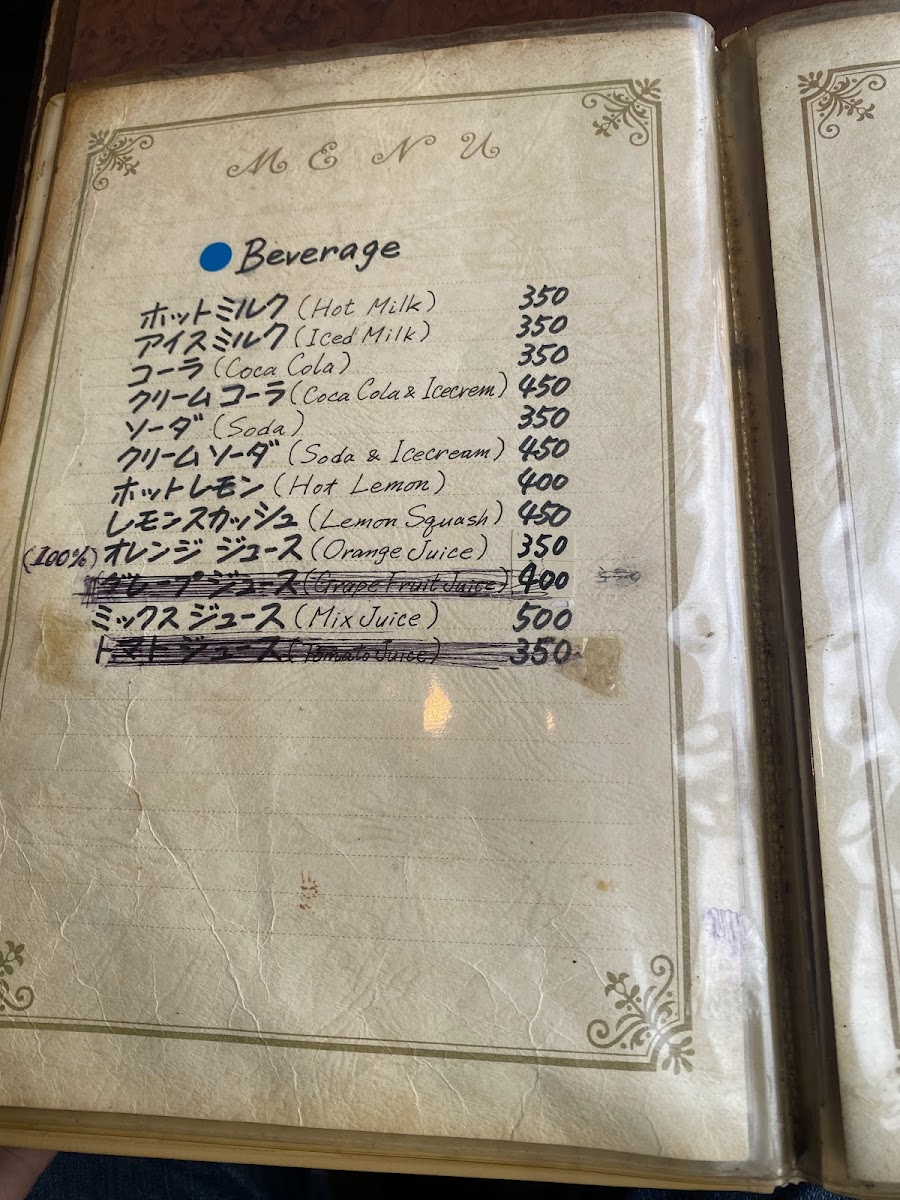 MENU
Beverage
ホットミルク (Hot Milk) 350
アイスミルク (Iced Milk) 350
コーラ (Coca Cola) 350
クリームコーラ (Coca Cola & Icecrem) 450
ソーダ (Soda) 350
クリームソーダ (Soda & Icecream) 450
ホットレモン (Hot Lemon) 400
レモンスカッシュ (Lemon Squash) 450
(100%) オレンジジュース (Orange Juice) 350
グレープジュース (Grape Fruit Juice) 400
ミックスジュース (Mix Juice) 500
トマトジュース (Tomato Juice) 350